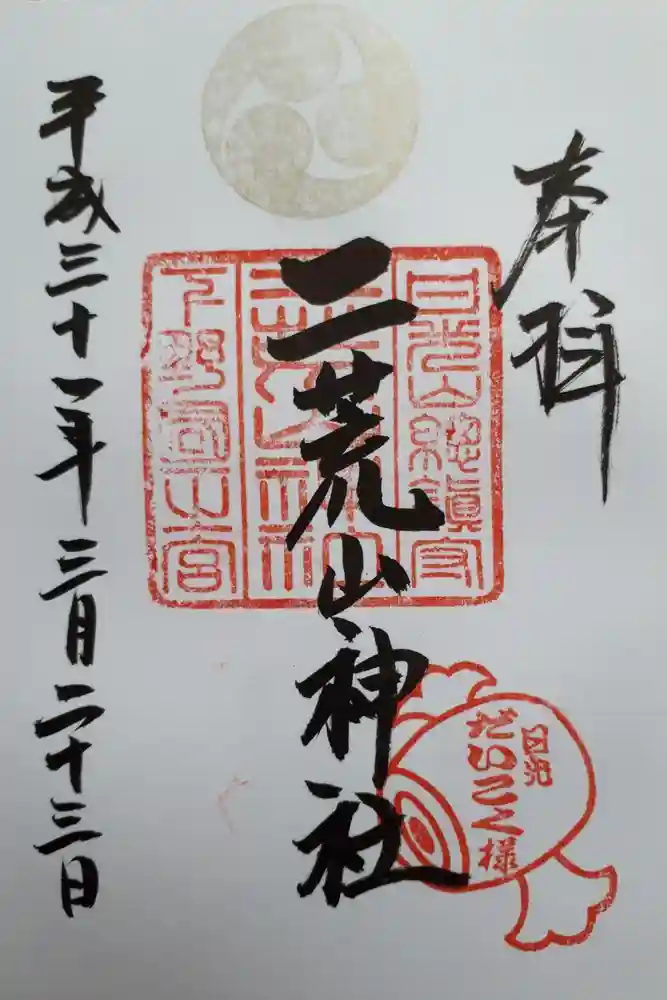 奉拝
日光山総鎮守
二荒山神社
下野国一宮
二荒山神社
日光
だいこく様
平成三十一年三月二十三日